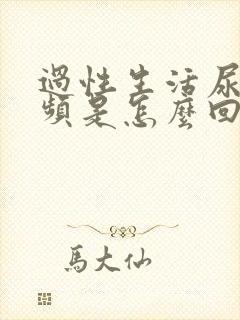 過性生活尿
頻是怎麼回
馬大仙